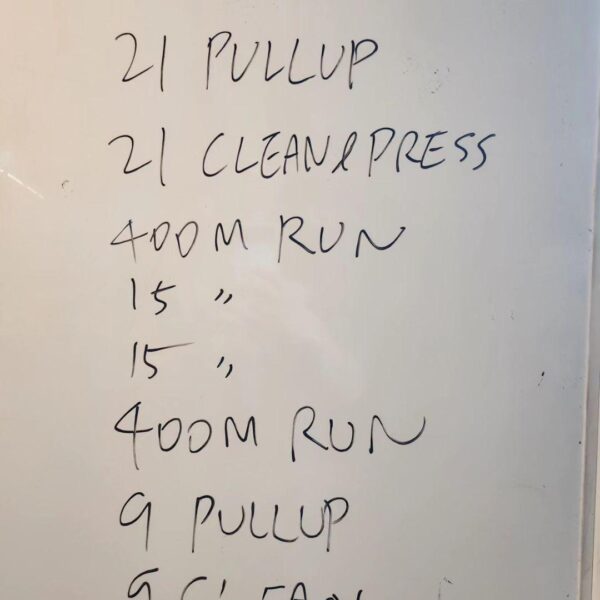 21 PULLUP
21 CLEAN & PRESS
400M RUN
15 "
15 "
400M RUN
9 PULLUP
9 CLEAN